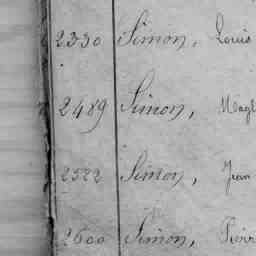 2330 Simon, Louis
2489 Simon, Magl
2522 Simon, Jean
2600 Simon, Pierr